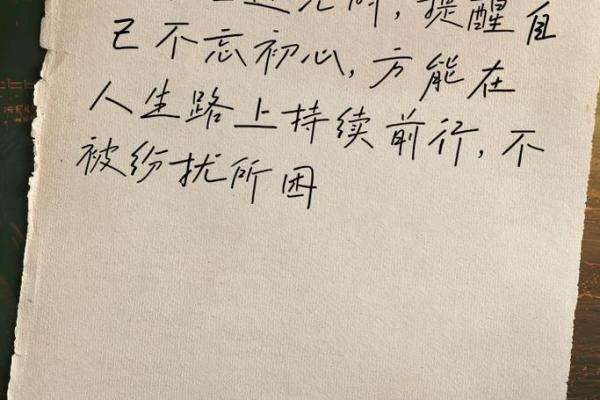 光时，提醒自
己不忘初心，方能在
人生路上持续前行，不
被纷扰所困